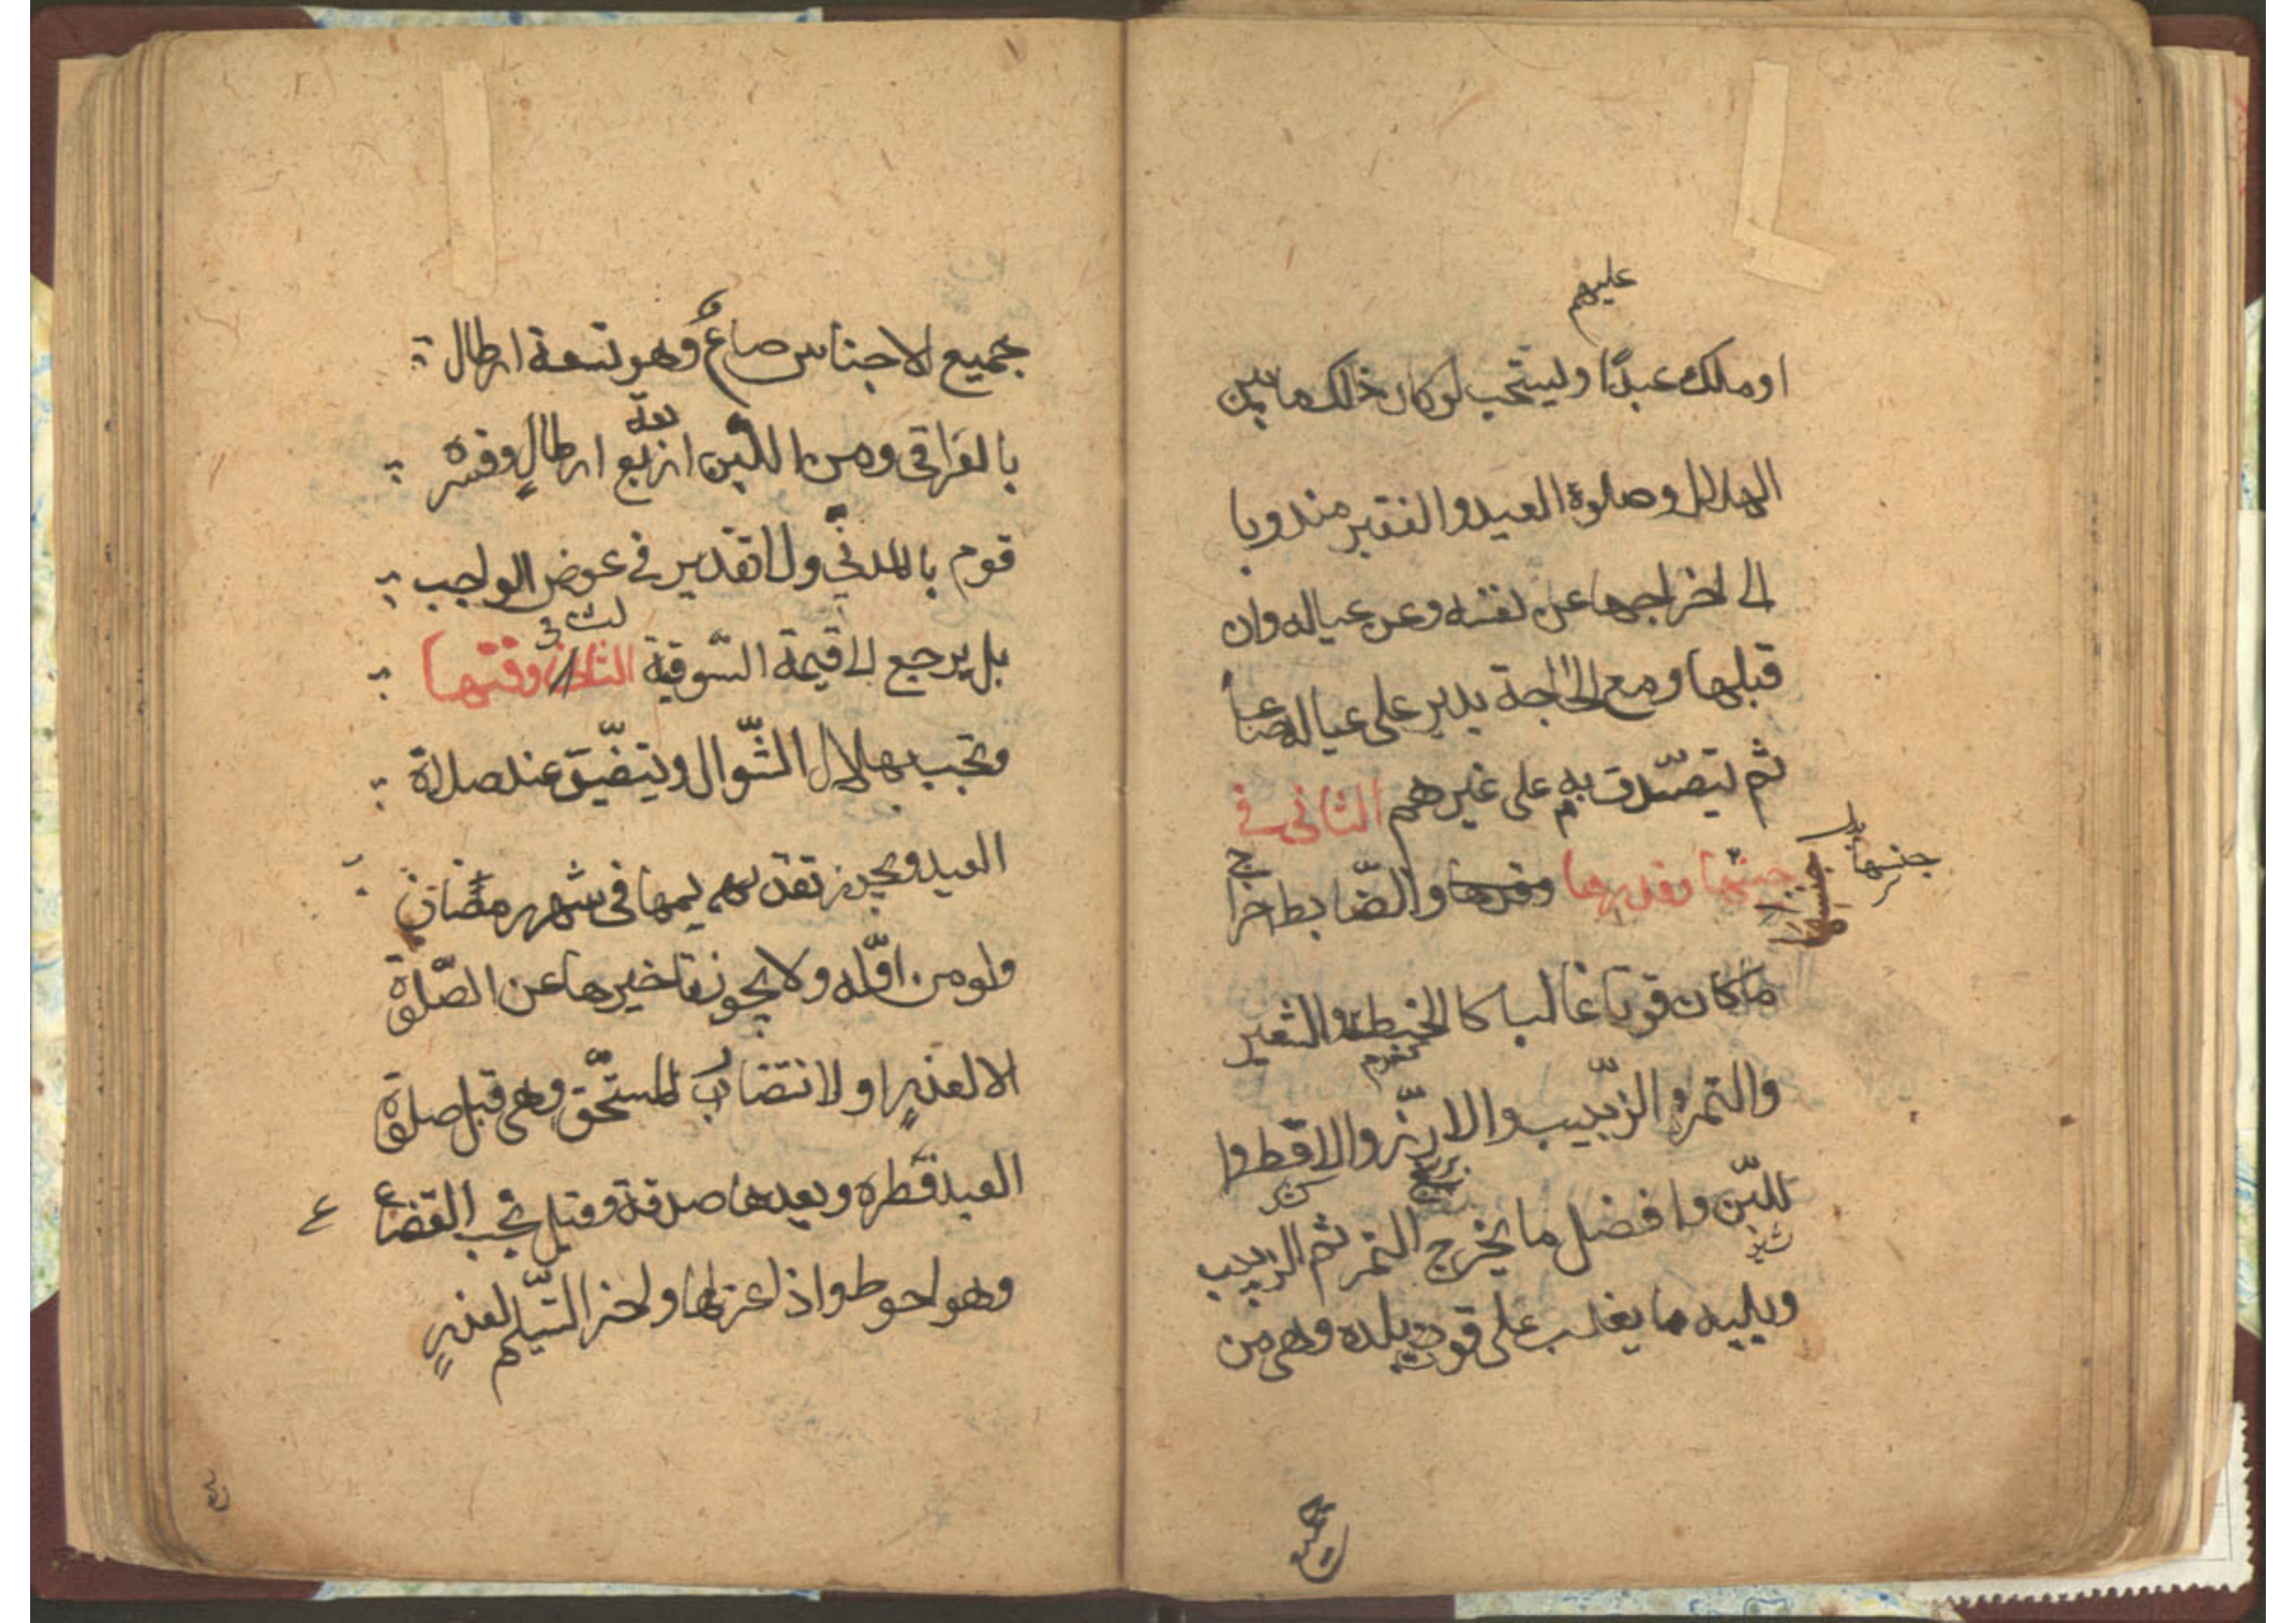 عليهم
او ملك عبدًا ويستحب لو كان ذلك ما بين
الهلال وصلوة العيد والفقير مندوبا
الى اخراجها عن نفسه وعن عياله وان
قبلها ومع الحاجة يدير على عياله صاعاً
ثم يتصدّق به على غيرهم الثانى فى
جنسها وقدرها والضّابط اخراج
جنسها بدل
ما كان قوتا غالبا كالحنطة والشعير
كندم
والتمر والزّبيب والارزّ والاقط وا
برنج
للبّن وافضل ما يخرج التمر ثم الزبيب
شير
ويليه ما يغلب على قوت بلده وهى من
جميع
جميع الاجناس صاعٌ وهو تسعة ارطال
بالعراقى ومن اللّبن اربعة ارطالٍ وفسّره
قوم بالمدنّي ولا تقدير فى عوض الواجب
بل يرجع الى قيمة السّوقية الثالث وقتها
لث فى
وتجب بهلال الشّوال ويتضّيق عند صلاة
العيد ويجوز تقديمها فى شهر رمضان
ولو من اوّله ولا يجوز تاخيرها عن الصّلوة
الا لعذرٍ او لانتضار المستحّق وهى قبل صلوة
العيد فطره وبعدها صدقة وقيل يجب القضاء
وهو احوط واذا عزلها واخر التّسليم لعذرٍ